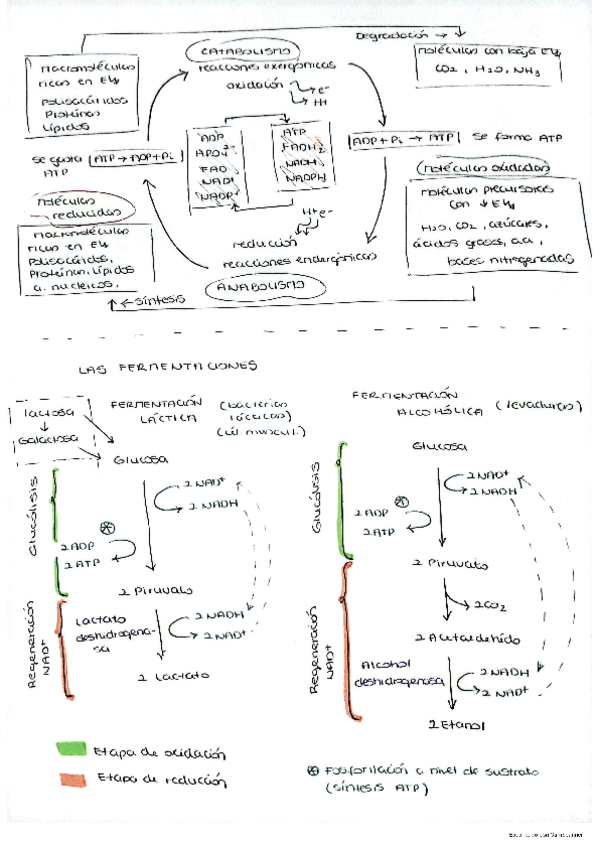 Degradación →
CATABOLISMO
reacciones exergónicas
oxidación → e-
→ H+
macromoléculas
ricas en EW
Polisacáridos
Proteínas
Lípidos
moléculas con baja EW
CO2, H2O, NH3
Se gasta
ATP
ATP → ADP + Pi
ADP
FAD
NAD+
NADP+
ATP
FADH2
NADH
NADPH
ADP + Pi → ATP
Se forma ATP
moléculas oxidadas
moléculas precursoras
con ↓ EW
H2O, CO2, azúcares,
ácidos grasos, aa,
bases nitrogenadas
moléculas
reducidas
macromoléculas
ricas en EW
Polisacáridos,
Proteínas, Lípidos
a. nucleicos.
H+ e-
reducción
reacciones endergónicas
ANABOLISMO
← Síntesis
LAS FERMENTACIONES
lactosa
↓
Galactosa
FERMENTACIÓN
LÁCTICA
(bacterias
lácticas)
(cél. muscul.)
Glucosa
2 NAD+
2 NADH
Glucólisis
2 ADP
2 ATP
2 Piruvato
Regeneración
NAD+
Lactato
deshidrogena-
sa
2 NADH
2 NAD+
2 Lactato
FERMENTACIÓN
ALCOHÓLICA
(levaduras)
Glucosa
2 NAD+
2 NADH
Glucólisis
2 ADP
2 ATP
2 Piruvato
2 CO2
2 Acetaldehído
Regeneración
NAD+
Alcohol
deshidrogenasa
2 NADH
2 NAD+
2 Etanol
Etapa de oxidación
Etapa de reducción
Fosforilación a nivel de sustrato
(síntesis ATP)